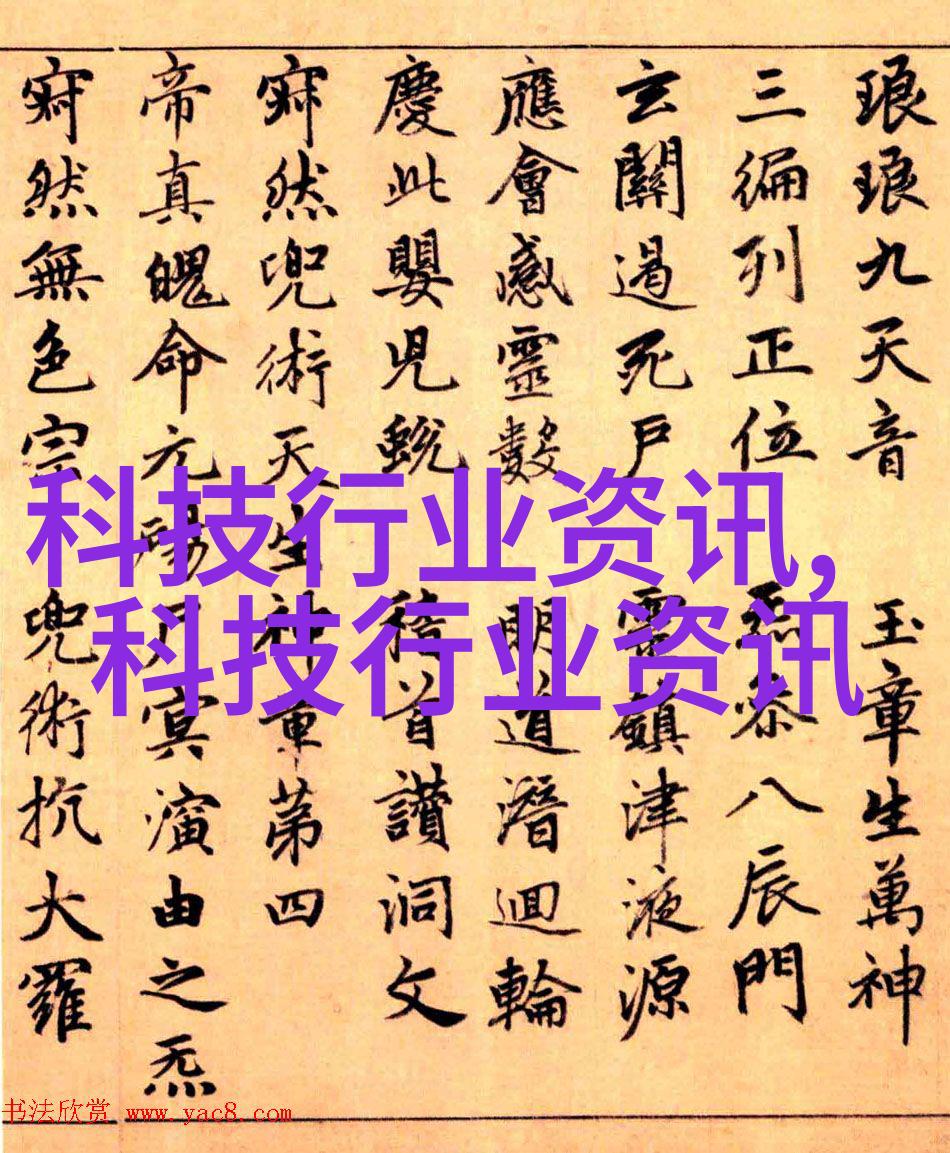 琅琅九天音 玉章生萬神
三編列正位 森八辰門
玄關過死戶 靈鎮津液源
應會感靈數 明道潛迴輪
慶此嬰兒蛻 稽首讃洞文
寂然兜術天生神章第四
帝真魄命元陽尸冥演由之炁
寂然無色宗兜術抗大羅
科技行业资讯,
科技行业资讯
书法欣赏 www.yac8.com